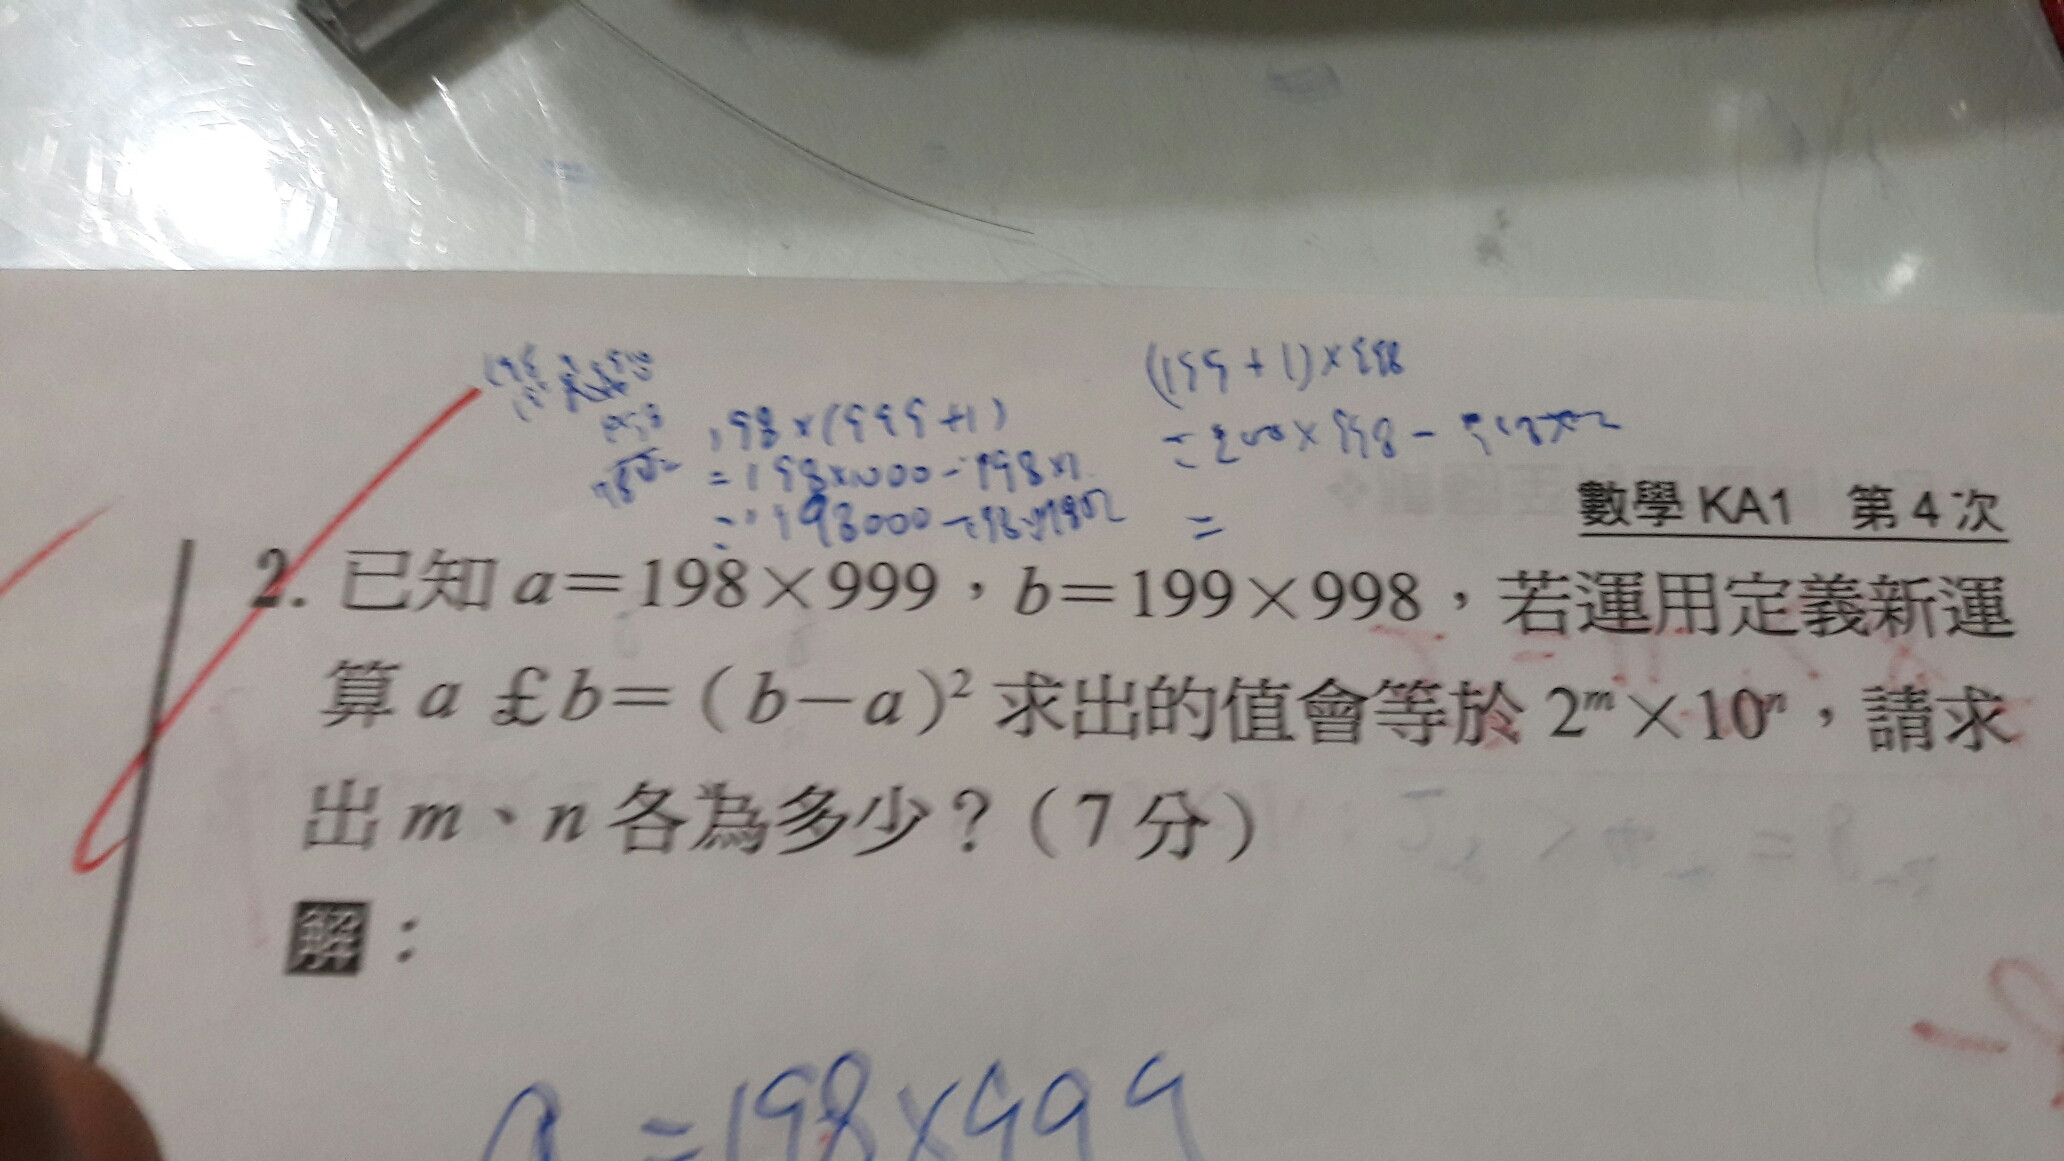 (199+1)×998
198×(999+1)
=200×998-
=198×1000-198×1
=198000-
=
數學 KA1 第 4 次
2. 已知 a=198×999，b=199×998，若運用定義新運
算 a £ b=(b-a)² 求出的值會等於 2ᵐ×10ⁿ，請求
出 m、n 各為多少？(7 分)
解：
a=198×999